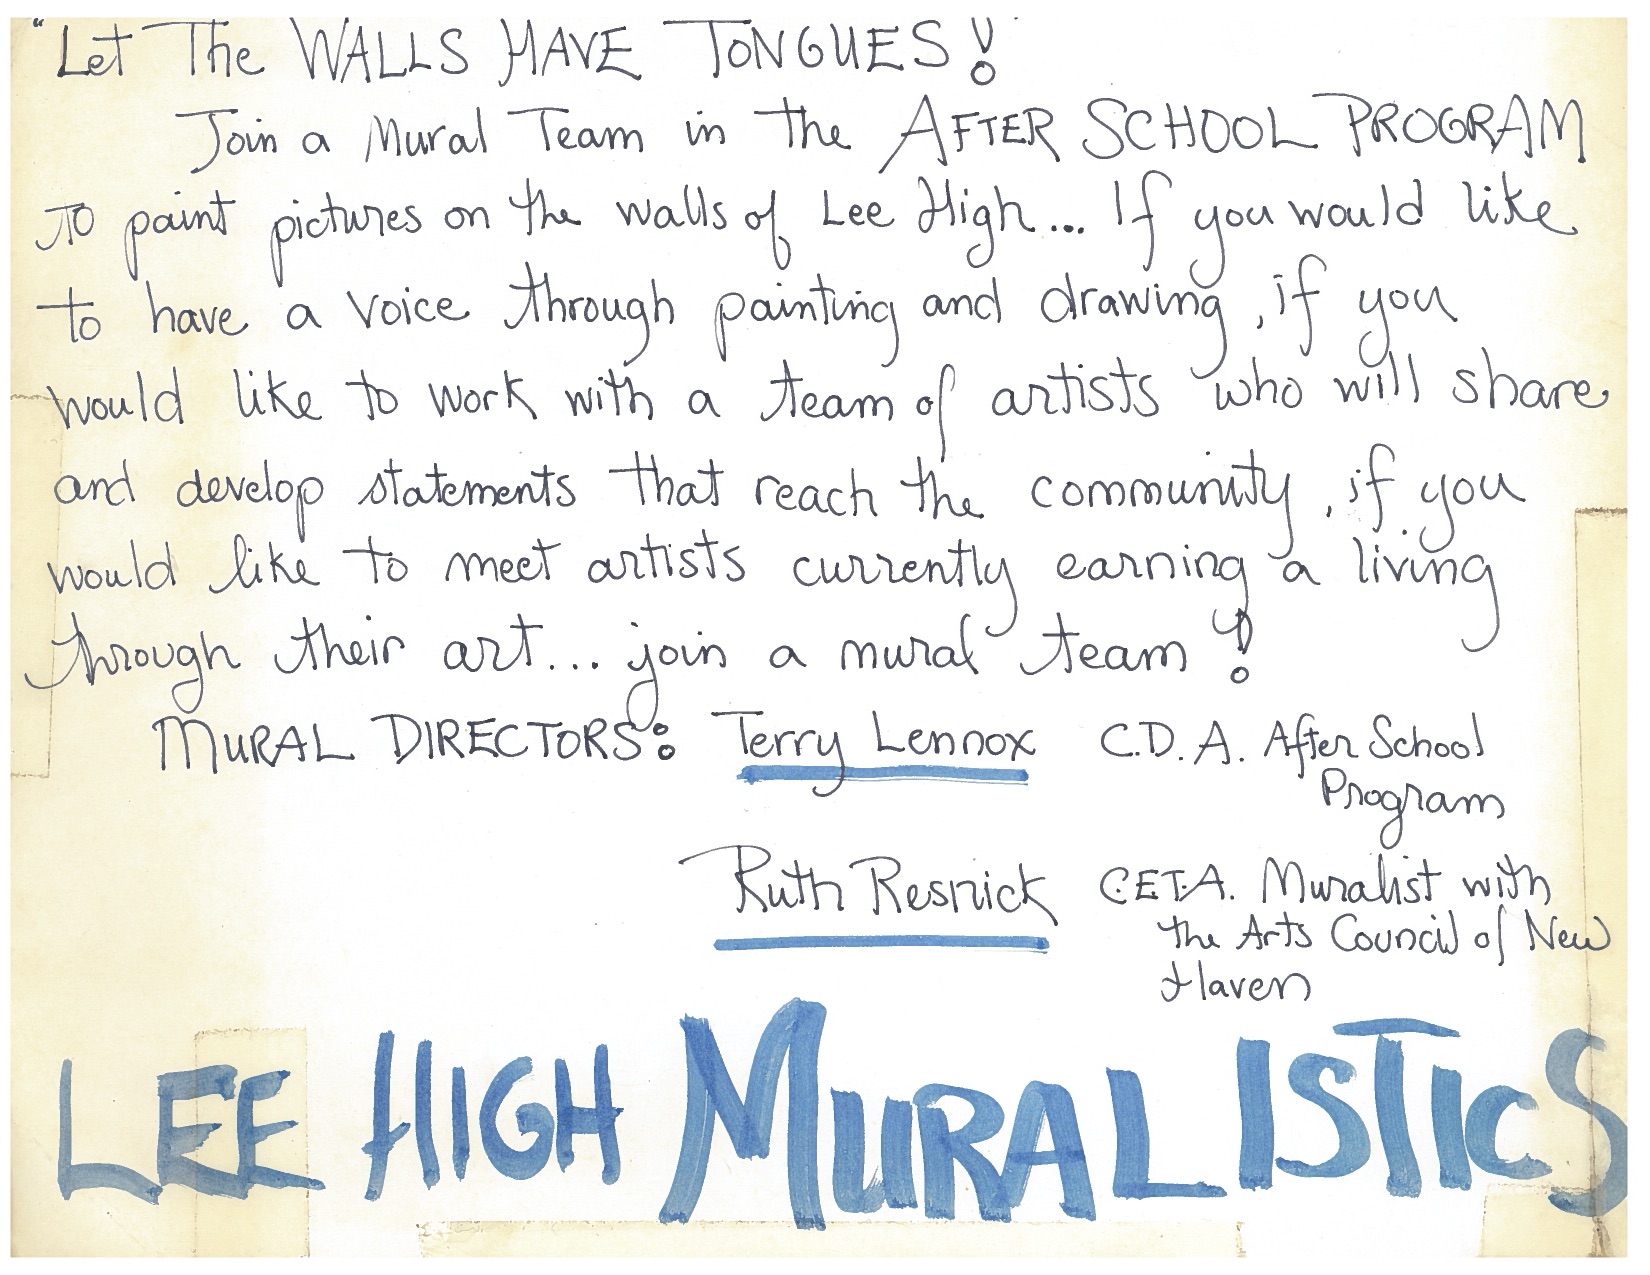 "Let The WALLS HAVE TONGUES!
Join a Mural Team in the AFTER SCHOOL PROGRAM
to paint pictures on the walls of Lee High... If you would like
to have a voice through painting and drawing, if you
would like to work with a team of artists who will share
and develop statements that reach the community, if you
would like to meet artists currently earning a living
through their art... join a mural team!
MURAL DIRECTORS: Terry Lennox C.D.A. After School
Program
Ruth Resnick C.E.T.A. Muralist with
the Arts Council of New
Haven
LEE HIGH MURALISTICS